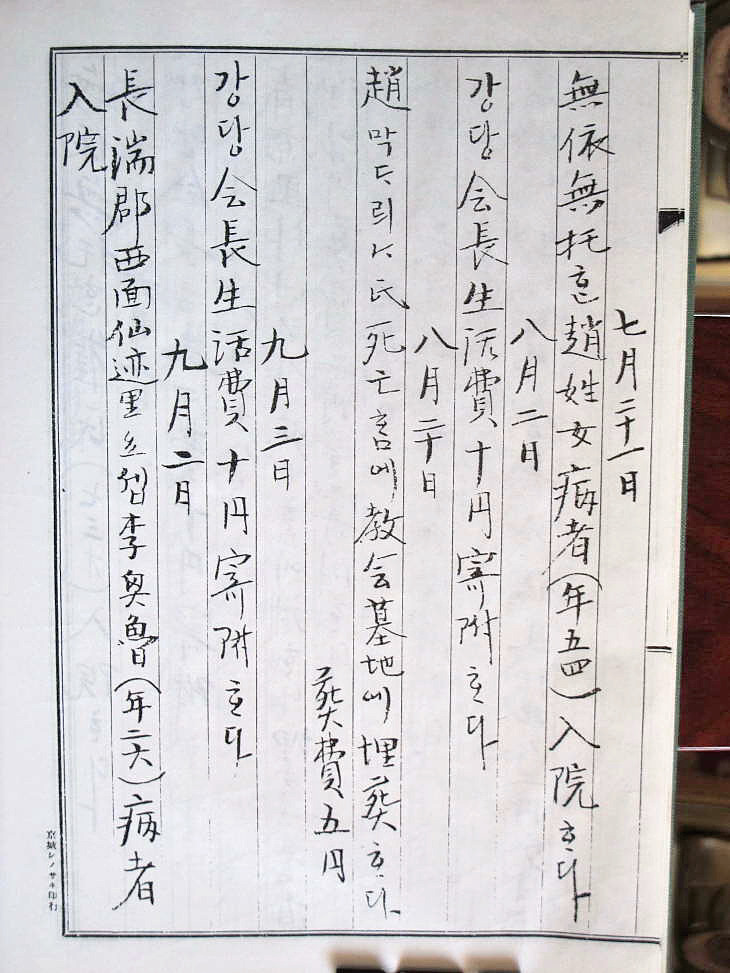 七月二十一日
無依無托ᄒᆞᆫ趙姓女病者(年五四)入院ᄒᆞ다
八月二日
강당会長生活費十円寄附ᄒᆞ다
八月二十日
趙 氏死亡ᄒᆞᆷ에教会墓地에埋葬ᄒᆞ다
葬費五円
九月三日
강당会長生活費十円寄附ᄒᆞ다
九月二日
長端郡西面仙迹里 李奥魯(年二六)病者
入院
京城シノサキ印行